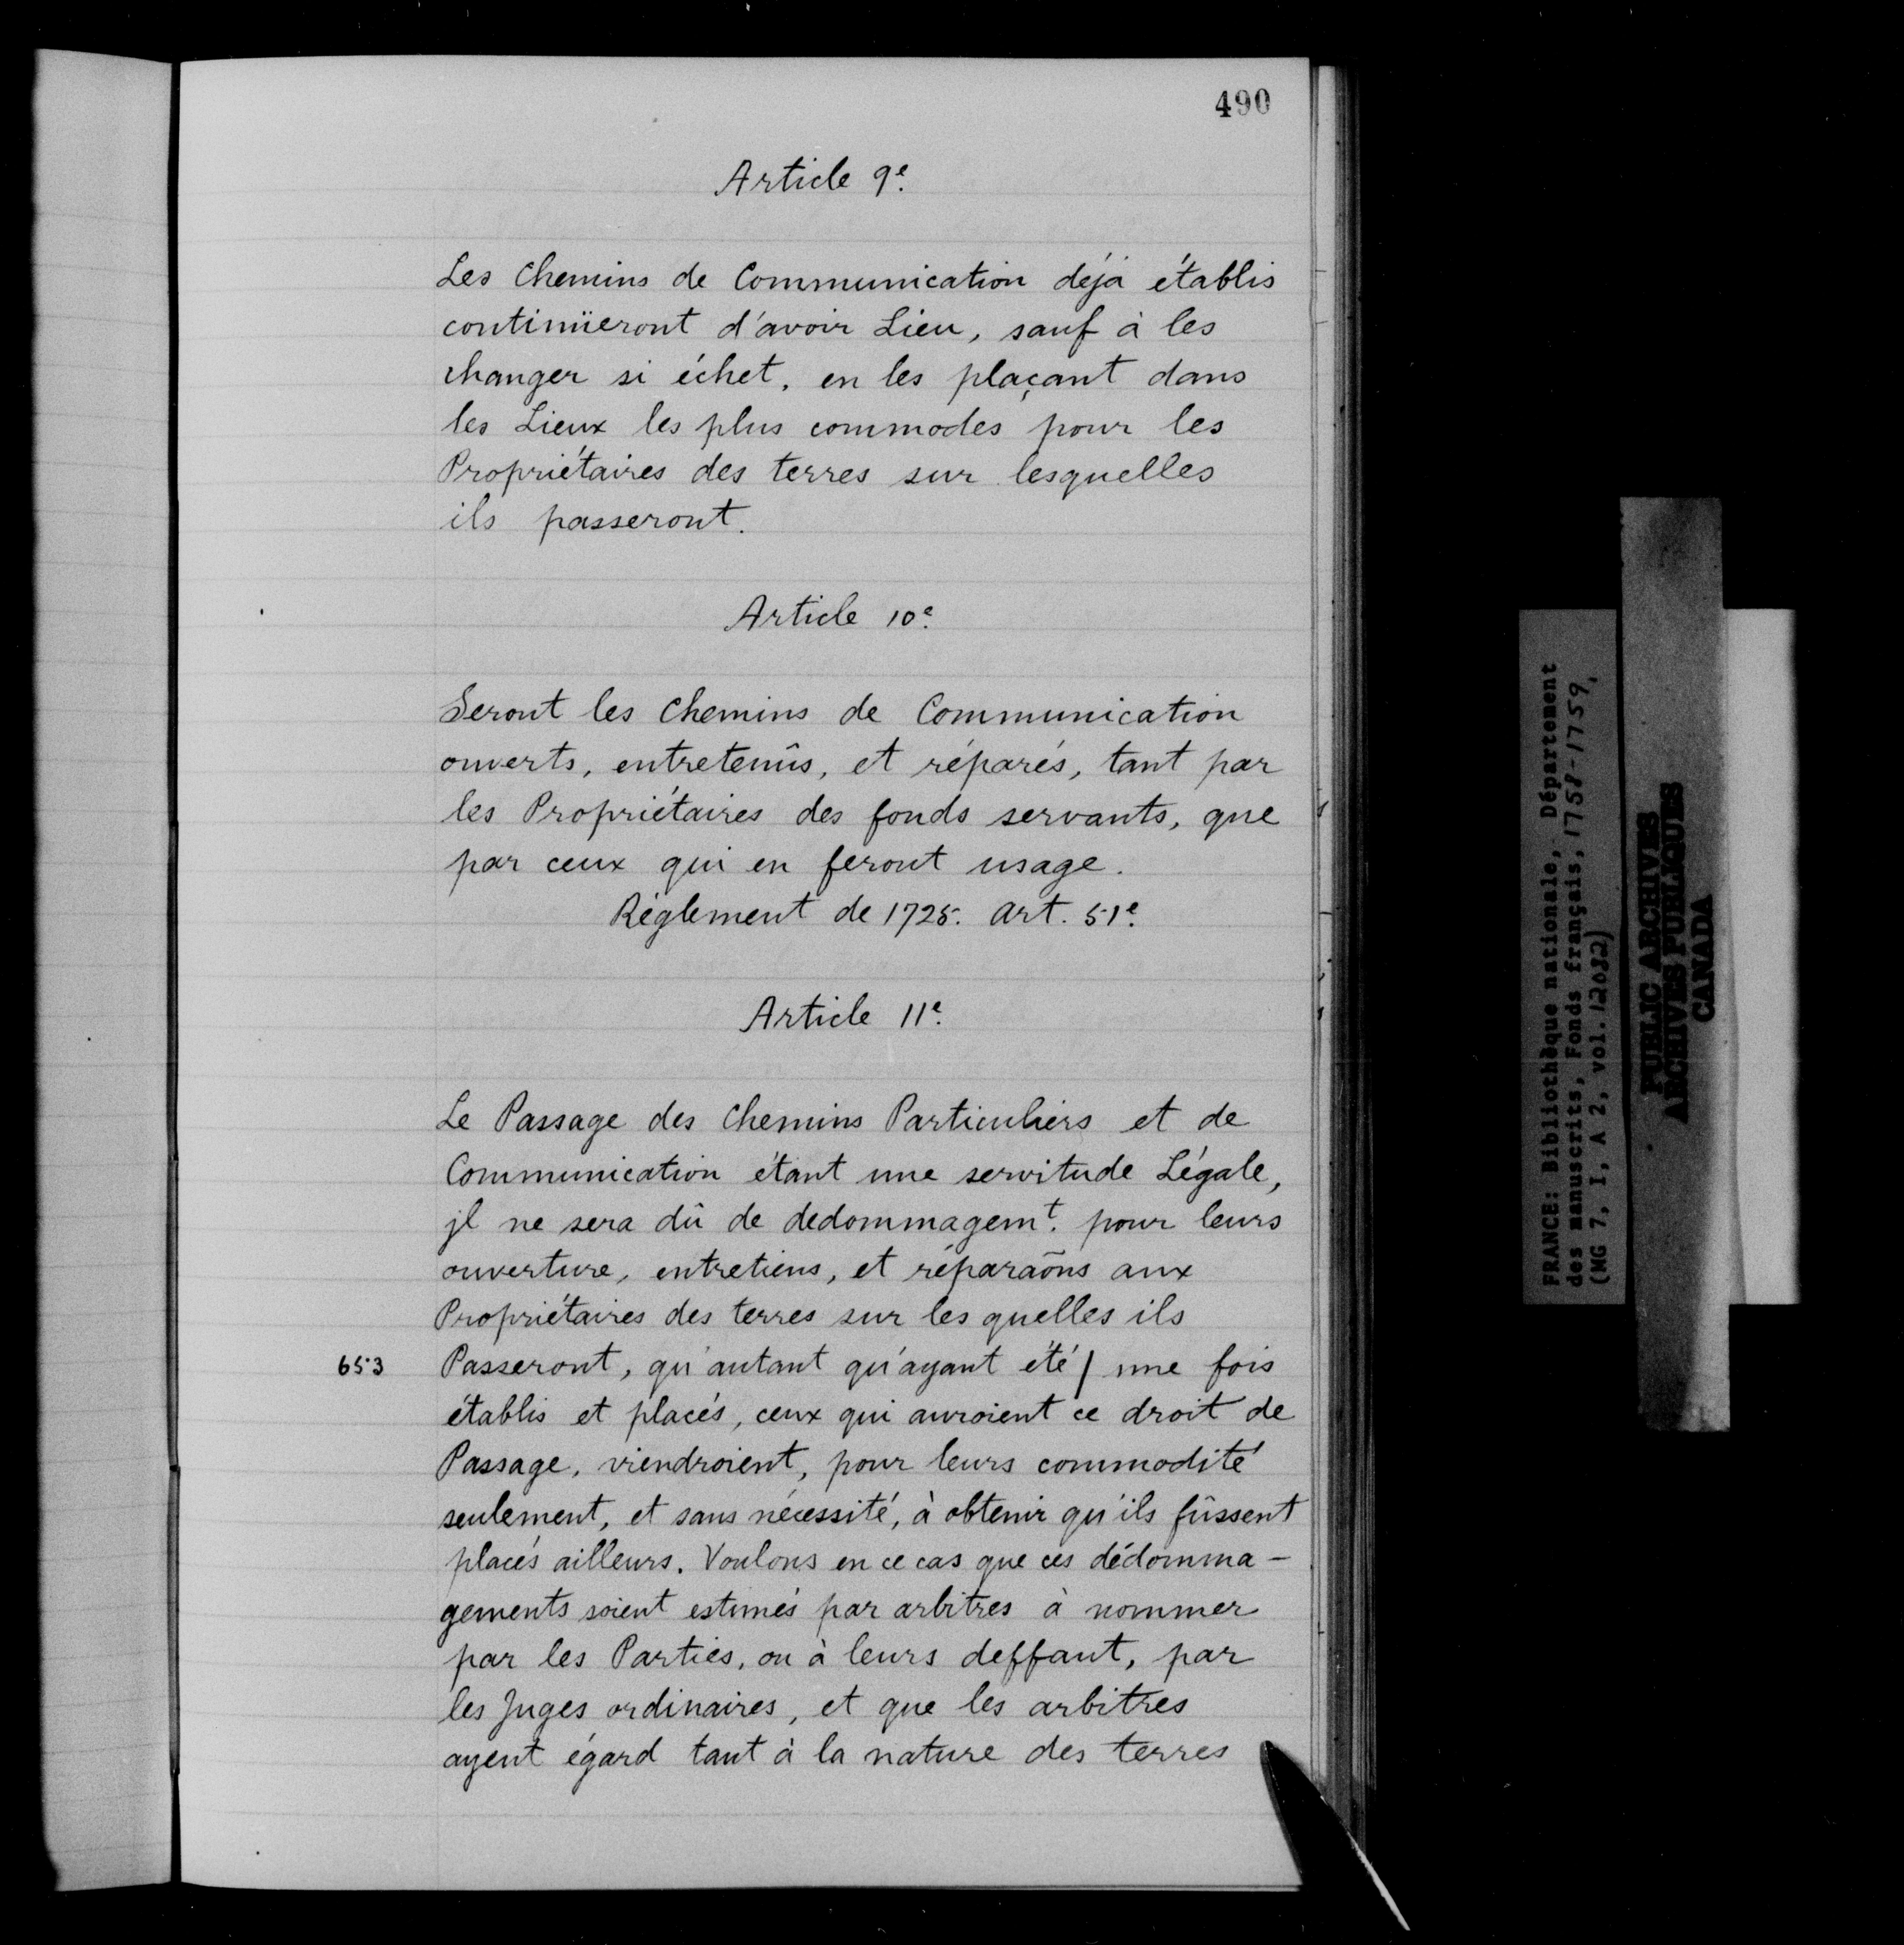 490
Article 9e.
Les Chemins de Communication déjà établis
continüeront d'avoir Lieu, sauf à les
changer si échet, en les plaçant dans
les Lieux les plus commodes pour les
Propriétaires des terres sur lesquelles
ils passeront.
Article 10e.
Seront les Chemins de Communication
ouverts, entretenûs, et réparés, tant par
les Propriétaires des fonds servants, que
par ceux qui en feront usage.
Réglement de 1725. Art. 51e.
Article 11e.
Le Passage des Chemins Particuliers et de
Communication étant une servitude Légale,
jl ne sera dû de dedommagemt. pour leurs
ouverture, entretiens, et réparaõns aux
Propriétaires des terres sur les quelles ils
653 Passeront, qu'autant qu'ayant été / une fois
établis et placés, ceux qui auroient ce droit de
Passage, viendroient, pour leurs commodité
seulement, et sans nécessité, à obtenir qu'ils fûssent
placés ailleurs. Voulons en ce cas que ces dédomma-
gements soient estimés par arbitres à nommer
par les Parties, ou à leurs deffaut, par
les Juges ordinaires, et que les arbitres
ayent égard tant à la nature des terres
FRANCE: Bibliothèque nationale, Département
des manuscrits, Fonds français, 1758-1759,
(MG 7, I, A 2, vol. 12082)
PUBLIC ARCHIVES
ARCHIVES PUBLIQUES
CANADA